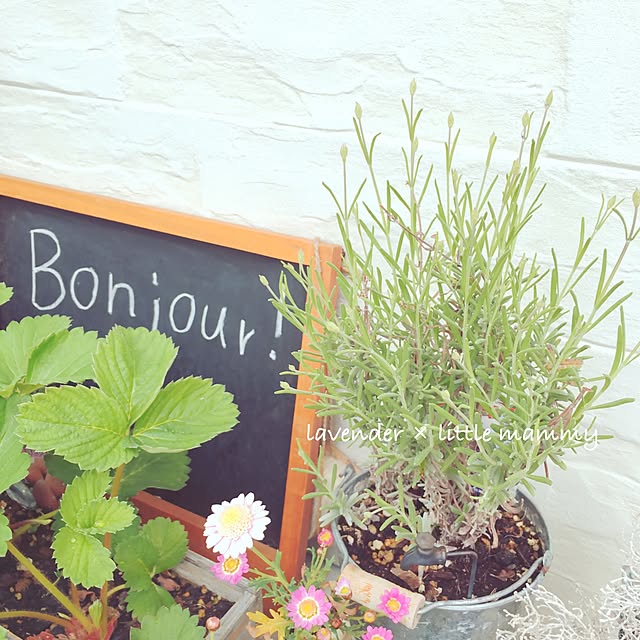 Bonjour!
lavender × little mammy